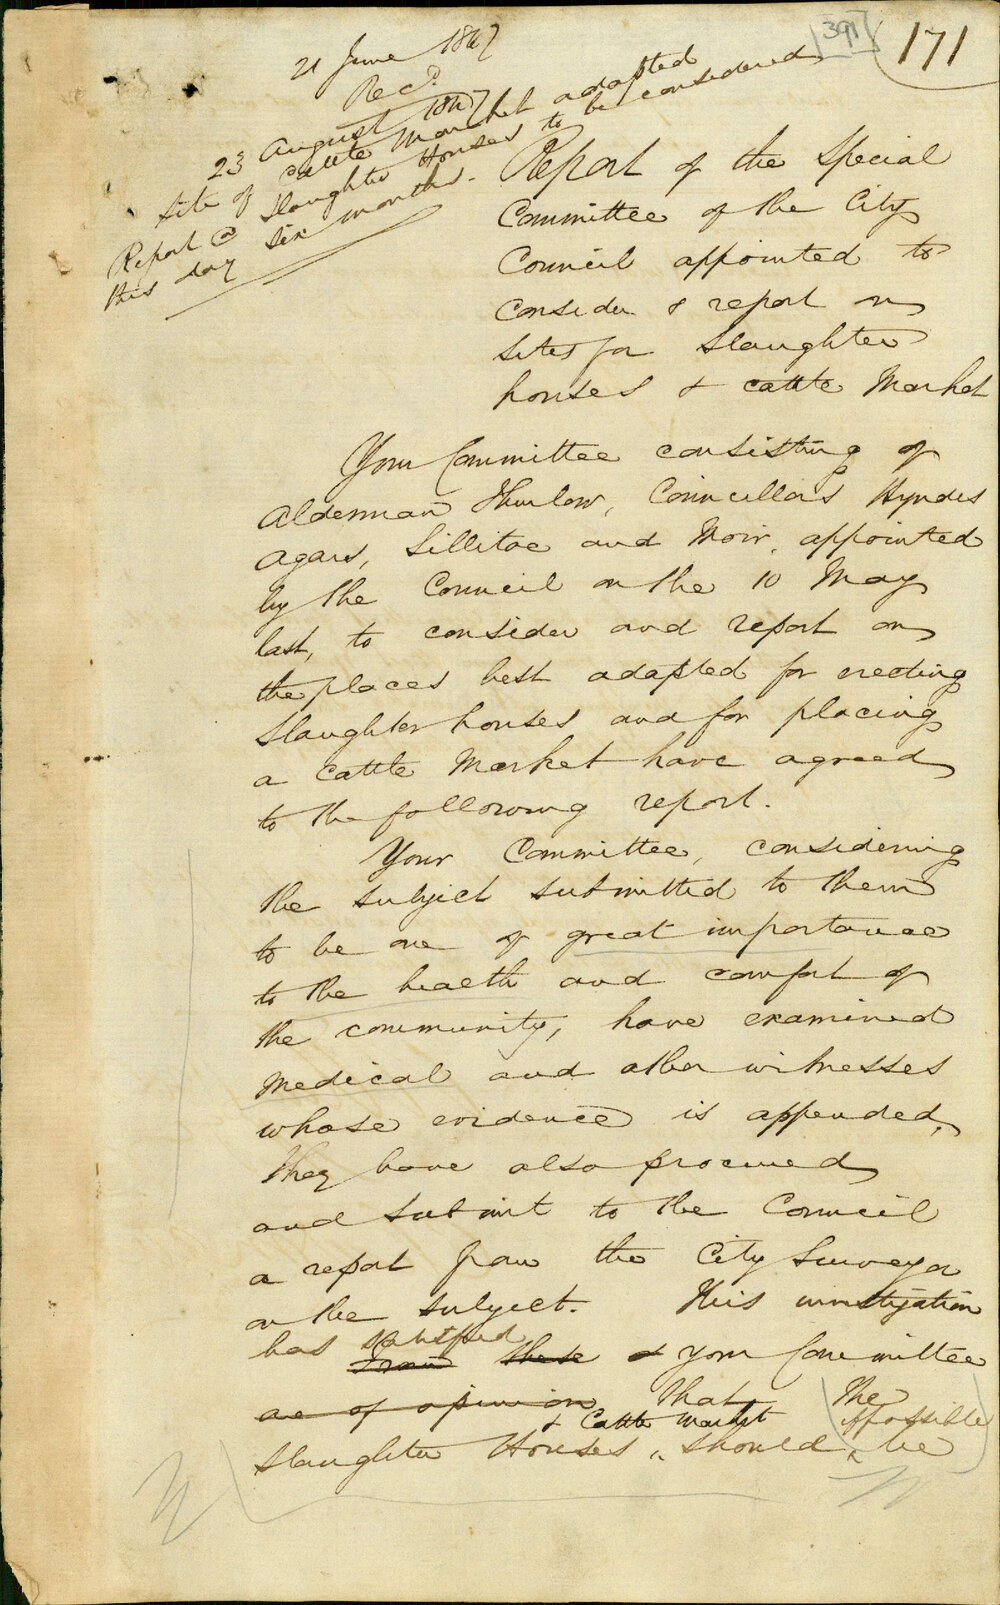 171
391
21 June 1847
Recd.
23 August 1847
Site of Cattle Market adapted
Slaughter Houses to be considered
Report @
this day six months.
Report of the Special
Committee of the City
Council appointed to
consider & report on
sites for Slaughter
houses & cattle Market
Your Committee consisting of
Alderman Thurlow, Councillors Hyndes
Agars, Sillitoe and Moir, appointed
by the Council on the 10 May
last, to consider and report on
the places best adapted for erecting
Slaughter houses and for placing
a Cattle Market have agreed
to the following report.
Your Committee, considering
the subject submitted to them
to be one of great importance
to the health and comfort of
the community, have examined
Medical and other witnesses
whose evidence is appended,
They have also procured
and submit to the Council
a report from the City Surveyor
on the subject. This investigation
has satisfied
From these & your Committee
are of opinion that the
& Cattle Market if possible
Slaughter Houses, should, be